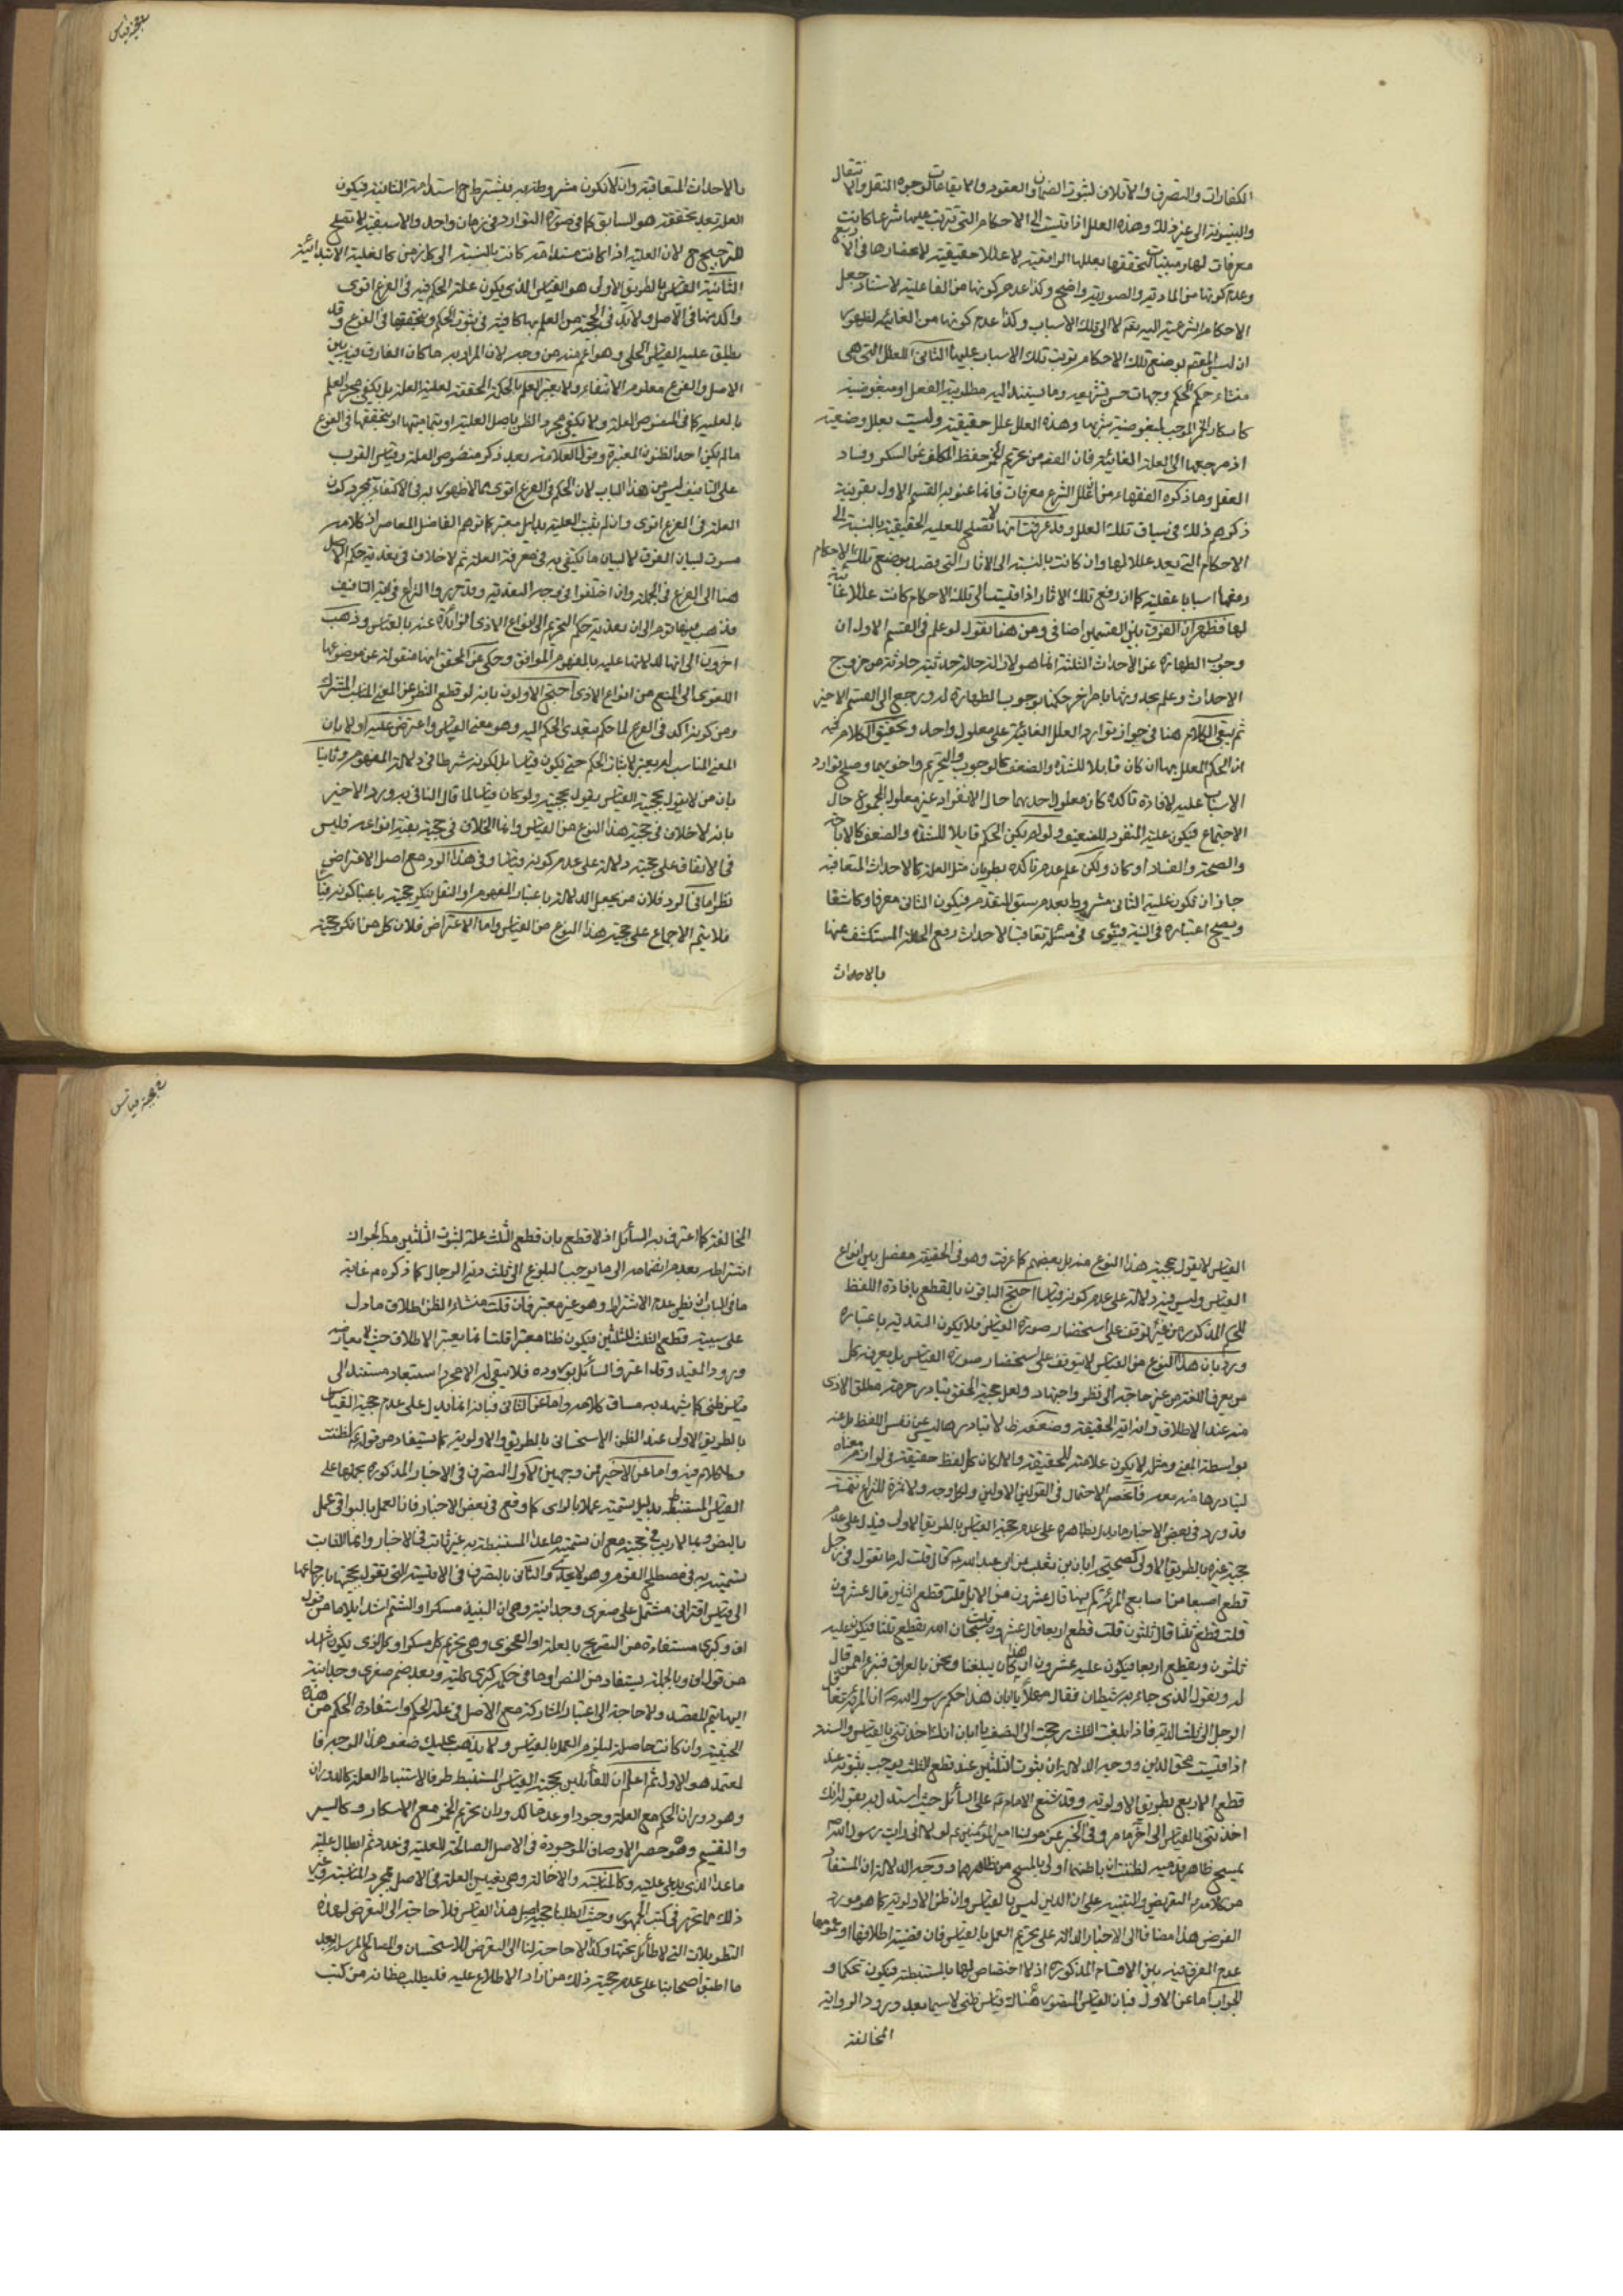 الكفارات والتصرف والاتلاف لثبوت الضمان والعقود والايقاعات لوجوه النقل والانتقال
والبينونة الى غير ذلك وهذه العلل اذا قيست الى الاحكام التي تترتب عليها شرعا كانت
معرفات لها ومبنيات لتحققها بعللها الواقعية لا عللا حقيقية
وعدم كونها من المادية والصورية واضح وكذا عدم كونها من الفاعلية لاستناد جعل
الاحكام الشرعية اليه تعالى لا الى تلك الاسباب وكذا عدم كونها من الغائية لظهور
ان ليس المقصود بوضع تلك الاحكام ترتب تلك الاسباب عليها الثاني العلل التي هي
منشاء حكم الحكم وجهات حسن تشريعه وما يستند اليه مطلوبية الفعل او مبغوضيته
كاسكار الخمر الموجب لمبغوضية شربها وهذه العلل علل حقيقية وليست بعلل وضعية
اذ مرجعها الى العلة الغائية فان الغرض من تحريم الخمر حفظ المكلف عن السكر وفساد
العقل وما ذكره الفقهاء من ان علل الشرع معرفات فانما عنوا به القسم الاول بقرينة
ذكرهم ذلك في سياق تلك العلل وقد عرفت انها لا تصلح للعلية الحقيقية بالنسبة الى
الاحكام التي يعد عللا لها وان كانت بالنسبة الى الاثار التي قصد بوضع تلك الاحكام
رفعها اسبابا عقلية كما ان رفع تلك الاثار اذا قيست الى تلك الاحكام كانت عللا غائية
لها فظهر ان الفرق بين القسمين اضافي ومن هنا نقول لو علم في القسم الاول ان
وجوب الطهارة عن الاحداث الثلثة انما هو لازالة حالة حدثية حادثة من خروج
الاحداث وعلم بحدوثها بامر اخر حكمنا بوجوب الطهارة له ورجع الى القسم الاخير
ثم يبقى الكلام هنا في جواز توارد العلل الغائية على معلول واحد وتحقيق الكلام فيه
ان الحكم المعلل بها ان كان قابلا للشدة والضعف كالوجوب والتحريم واخويهما وصلح توارد
الاسباب عليه لافادة تاكده كان معلولا حدها حال الانفراد غير معلول المجموع حال
الاجتماع فيكون علية المنفرد للضعيف ولو لم يكن الحكم قابلا للشدة والضعف كالاباحة
والصحة والفساد او كان ولكن علم عدم تاكده بطريان مثل العلة كالاحداث المتعاقبة
جاز ان تكون علية الثاني مشروط بعدم سبق المتقدم فيكون الثاني معرفا وكاشفا
ويصح اعتباره في النية فينوى في مسئلة تعاقب الاحداث رفع الحالة المستكشف عنها
بالاحداث
حجية قياس
بالاحداث المتعاقبة وان لا تكون مشروطة به فيشترط ح استدامة الثانية فيكون
العلة بعد تحققه هو السابق كما في صورة التوارد في زمان واحد والاسبقية لا تصلح
للترجيح ح لان العلية اذا كانت مستدامة كانت بالنسبة الى كل زمن كالعلية الابتدائية
الثانية القياس بالطريق الاولى هو القياس الذي يكون علة الحكم فيه في الفرع اقوى
واكد منها في الاصل ولا بد في الحجية من العلم بها كافية في ثبوت الحكم وبتحققها في الفرع وقد
يطلق عليه القياس الجلي وهو اعم منه من وجه لان المراد به ما كان الفارق فيه بين
الاصل والفرع معلوم الانتفاء ولا يعتبر العلم بالحكمة المحققة لعلية العلة بل يكفي مجرد العلم
بالعلية كما في المنصوص العلة ولا يكفي مجرد الظن باصل العلية او بتماميتها او بتحققها في الفرع
ما لم يكن احد الظنون المعتبرة وقول العلامة بعد ذكر منصوص العلة وقياس الضرب
على التافيف ليس من هذا الباب لان الحكم في الفرع اقوى مما لا ظهور له في الاكتفاء بمجرد كون
العلة في الفرع اقوى وان لم يثبت العلية بدليل معتبر كما توهم الفاضل المعاصر اذ كلامه
مسوق لبيان الفرق لا لبيان ما يكتفى به في معرفة العلة ثم لا خلاف في تعدية حكم الاصل
هنا الى الفرع في الجملة وان اختلفوا في وجه التعدية وقد حرروا النزاع في اية التافيف
فذهب منها قوم الى ان تعدية حكم التحريم الى انواع الاذى الزائدة عنه بالقياس وذهب
اخرون الى انها لدلالتها عليه بالمفهوم الموافق وحكي عن المحقق انها منقولة عن موضوعها
اللغوي الى المنع من انواع الاذى احتج الاولون بانه لو قطع النظر عن المعنى المناسب المشترك
ومن كونه اكد في الفرع لما حكم بتعدى الحكم اليه وهو معنى القياس واعترض عليه اولا بان
المعنى المناسب لم يعتبر لاثبات الحكم حتى يكون قياسا بل لكونه شرطا في دلالة المفهوم وثانيا
بان من لا يقول بحجية القياس يقول بحجيته ولو كان قياسا لما قال النافي به ورد الاخير
بانه لا خلاف في حجية هذا النوع من القياس وانما الخلاف في حجية بقية انواعه فليس
في الاتفاق على حجيته دلالة على عدم كونه قياسا وفي هذا الرد مع اصل الاعتراض
نظر اما في الرد فلان من يجعل الدلالة باعتبار المفهوم او النقل ينكر حجيته باعتبار كونه قياسا
فلا يتم الاجماع على حجية هذا النوع من القياس واما الاعتراض فلان كل من انكر حجية
القياس لا يقول بحجية هذا النوع منه بل بعضهم كما عرفت وهو في الحقيقة مفصل بين انواع
القياس وليس فيه دلالة على عدم كونه قياسا احتج الباقون بالقطع بافادة اللفظ
للحكم المذكور من غير توقف على استحضار صورة القياس فلا يكون التعدية باعتباره
ورد بان هذا النوع من القياس لا يتوقف على استحضار صورة القياس بل يعرفه كل
من يعرف اللغة من غير حاجة الى نظر واجتهاد ولعل حجة المحقق تبادر حرمة مطلق الاذى
منه عند الاطلاق وانه اية الحقيقة وضعفه ظ لان تبادرها ليس عن نفس اللفظ بل عنه
بواسطة المعنى ومثله لا يكون علامة للحقيقة والا لكان كل لفظ حقيقة في لوازم معناه
لتبادرها منه فانحصر الاحتمال في القولين الاولين ولكل وجه ولا ثمرة للنزاع تتمة
قد ورد في بعض الاخبار ما يدل بظاهره على عدم حجية القياس بالطريق الاولى فيدل على عدم
حجية غيره بالطريق الاولى كصحيحة ابان بن تغلب عن ابي عبد الله ع قال قلت له ما تقول في رجل
قطع اصبعا من اصابع المرئة كم فيها قال عشرون من الابل قلت قطع اثنين قال عشرون
قلت قطع ثلثا قال ثلثون قلت قطع اربعا قال عشرون قلت سبحان الله يقطع ثلثا فيكون عليه
ثلثون ويقطع اربعا فيكون عليه عشرون ان هذا كان يبلغنا ونحن بالعراق فنبرء ممن قال
له ونقول الذي جاء به شيطان فقال مهلا يا ابان هذا حكم رسول الله ص ان المرئة تعاقل
الرجل الى ثلث الدية فاذا بلغت الثلث رجعت الى النصف يا ابان انك اخذتني بالقياس والسنة
اذا قيست محق الدين ووجه الدلالة ان ثبوت الثلثين عند قطع الثلث يوجب ثبوته عند
قطع الاربع بطريق الاولوية وقد شنع الامام ع على السائل حيث استدل به بقوله انك
اخذتني بالقياس الى اخر ما مر وفي الخبر عن مولينا امير المؤمنين ع لولا انى رايت رسول الله ص
يمسح ظاهر قدميه لظننت ان باطنهما اولى بالمسح من ظاهرهما ووجه الدلالة ان المستفاد
من كلامه ع التعريض والتنبيه على ان الدين ليس بالقياس وان ظن الاولوية كما هو مورد
الفرض هذا مضافا الى الاخبار الدالة على تحريم العمل بالقياس فان قضية اطلاقها او عمومها
عدم الفرق فيه بين الاقسام المذكورة اذ لا اختصاص لها بالمستنبطة فيكون تحكما و
الجواب اما عن الاول فبان القياس المتصور هناك قياس ظني لا سيما بعد ورود الرواية
المخالفة
حجية قياس
المخالفة كما اعترف به السائل اذ لا قطع بان قطع الثلث علة لثبوت الثلثين مط لجواز
اشتراطه بعدم انضمامه الى ما يوجب البلوغ الى ثلث دية الرجال كما ذكره ع غاية
ما في الباب ان يظن عدم الاشتراط وهو غير معتبر فان قلت منشاء الظن اطلاق ما دل
على سببية قطع الثلث للثلثين فيكون ظنا معتبرا قلت انما يعتبر الاطلاق حيث لا يعارضه
ورود المقيد وقد اعترف السائل بوروده فلا يبقى له الا مجرد استبعاد مستند الى
قياس ظني كما يشهد به مساق كلامه واما عن الثاني فبانه انما يدل على عدم حجية القياس
بالطريق الاولى عند الظن الاستحساني بالطريق والاولوية كما يستفاد من قوله ع لظننت
ولا كلام فيه واما عن الاخير فمن وجهين الاول التصرف في الاخبار المذكورة بحملها على
القياس المستنبط بدليل تسميته عملا بالراى كما وقع في بعض الاخبار فان العمل بالبواقي عمل
بالنص ولا ريب في حجيته مع ان تسمية ما عدا المستنبطة به غير ثابت في الاخبار وانما الثابت
تسميته به في مصطلح القوم وهو لا يجدى والثاني بالتصرف في الاقيسة التي نقول بحجيتها بارجاعها
الى قياس اقتراني مشتمل على صغرى وجدانية وهي ان النبيذ مسكر او الشتم اشد ايلاما من قول
اف وكبرى مستفادة من التصريح بالعلة او الفحوى وهي تحريم كل مسكر او كل اذى يكون اشد
من قول اف وبالجملة يستفاد من النص او ما في حكمه كبرى كلية وبعد ضم صغرى وجدانية
اليها يتم المقصد ولا حاجة الى اعتبار المشاركة مع الاصل في علة الحكم واستفادة الحكم من هذه
الحيثية وان كانت حاصلة ليلزم العمل بالقياس ولا يذهب عليك ضعف هذا الوجه فا
لمعتمد هو الاول ثم اعلم ان للقائلين بحجية القياس المستنبط طرقا لاستنباط العلة كالدوران
وهو دوران الحكم مع العلة وجودا وعدما كدوران تحريم الخمر مع الاسكار وكالسبر
والتقسيم وهو حصر الاوصاف الموجودة في الاصل الصالحة للعلية في عدد ثم ابطال علية
ما عدا الذي يدعى عليته وكالمناسبة والاخالة وهي تعيين العلة في الاصل بمجرد المناسبة وغير
ذلك مما تحرر في كتب الجمهور وحيث ابطلنا حجية اصل هذا القياس فلا حاجة الى التعرض لهذه
التطويلات التي لا طائل تحتها وكذا لا حاجة لنا الى التعرض للاستحسان والمصالح المرسلة بعد
ما اطبق اصحابنا على عدم حجية ذلك من اراد الاطلاع عليه فليطلب مظانه من كتب